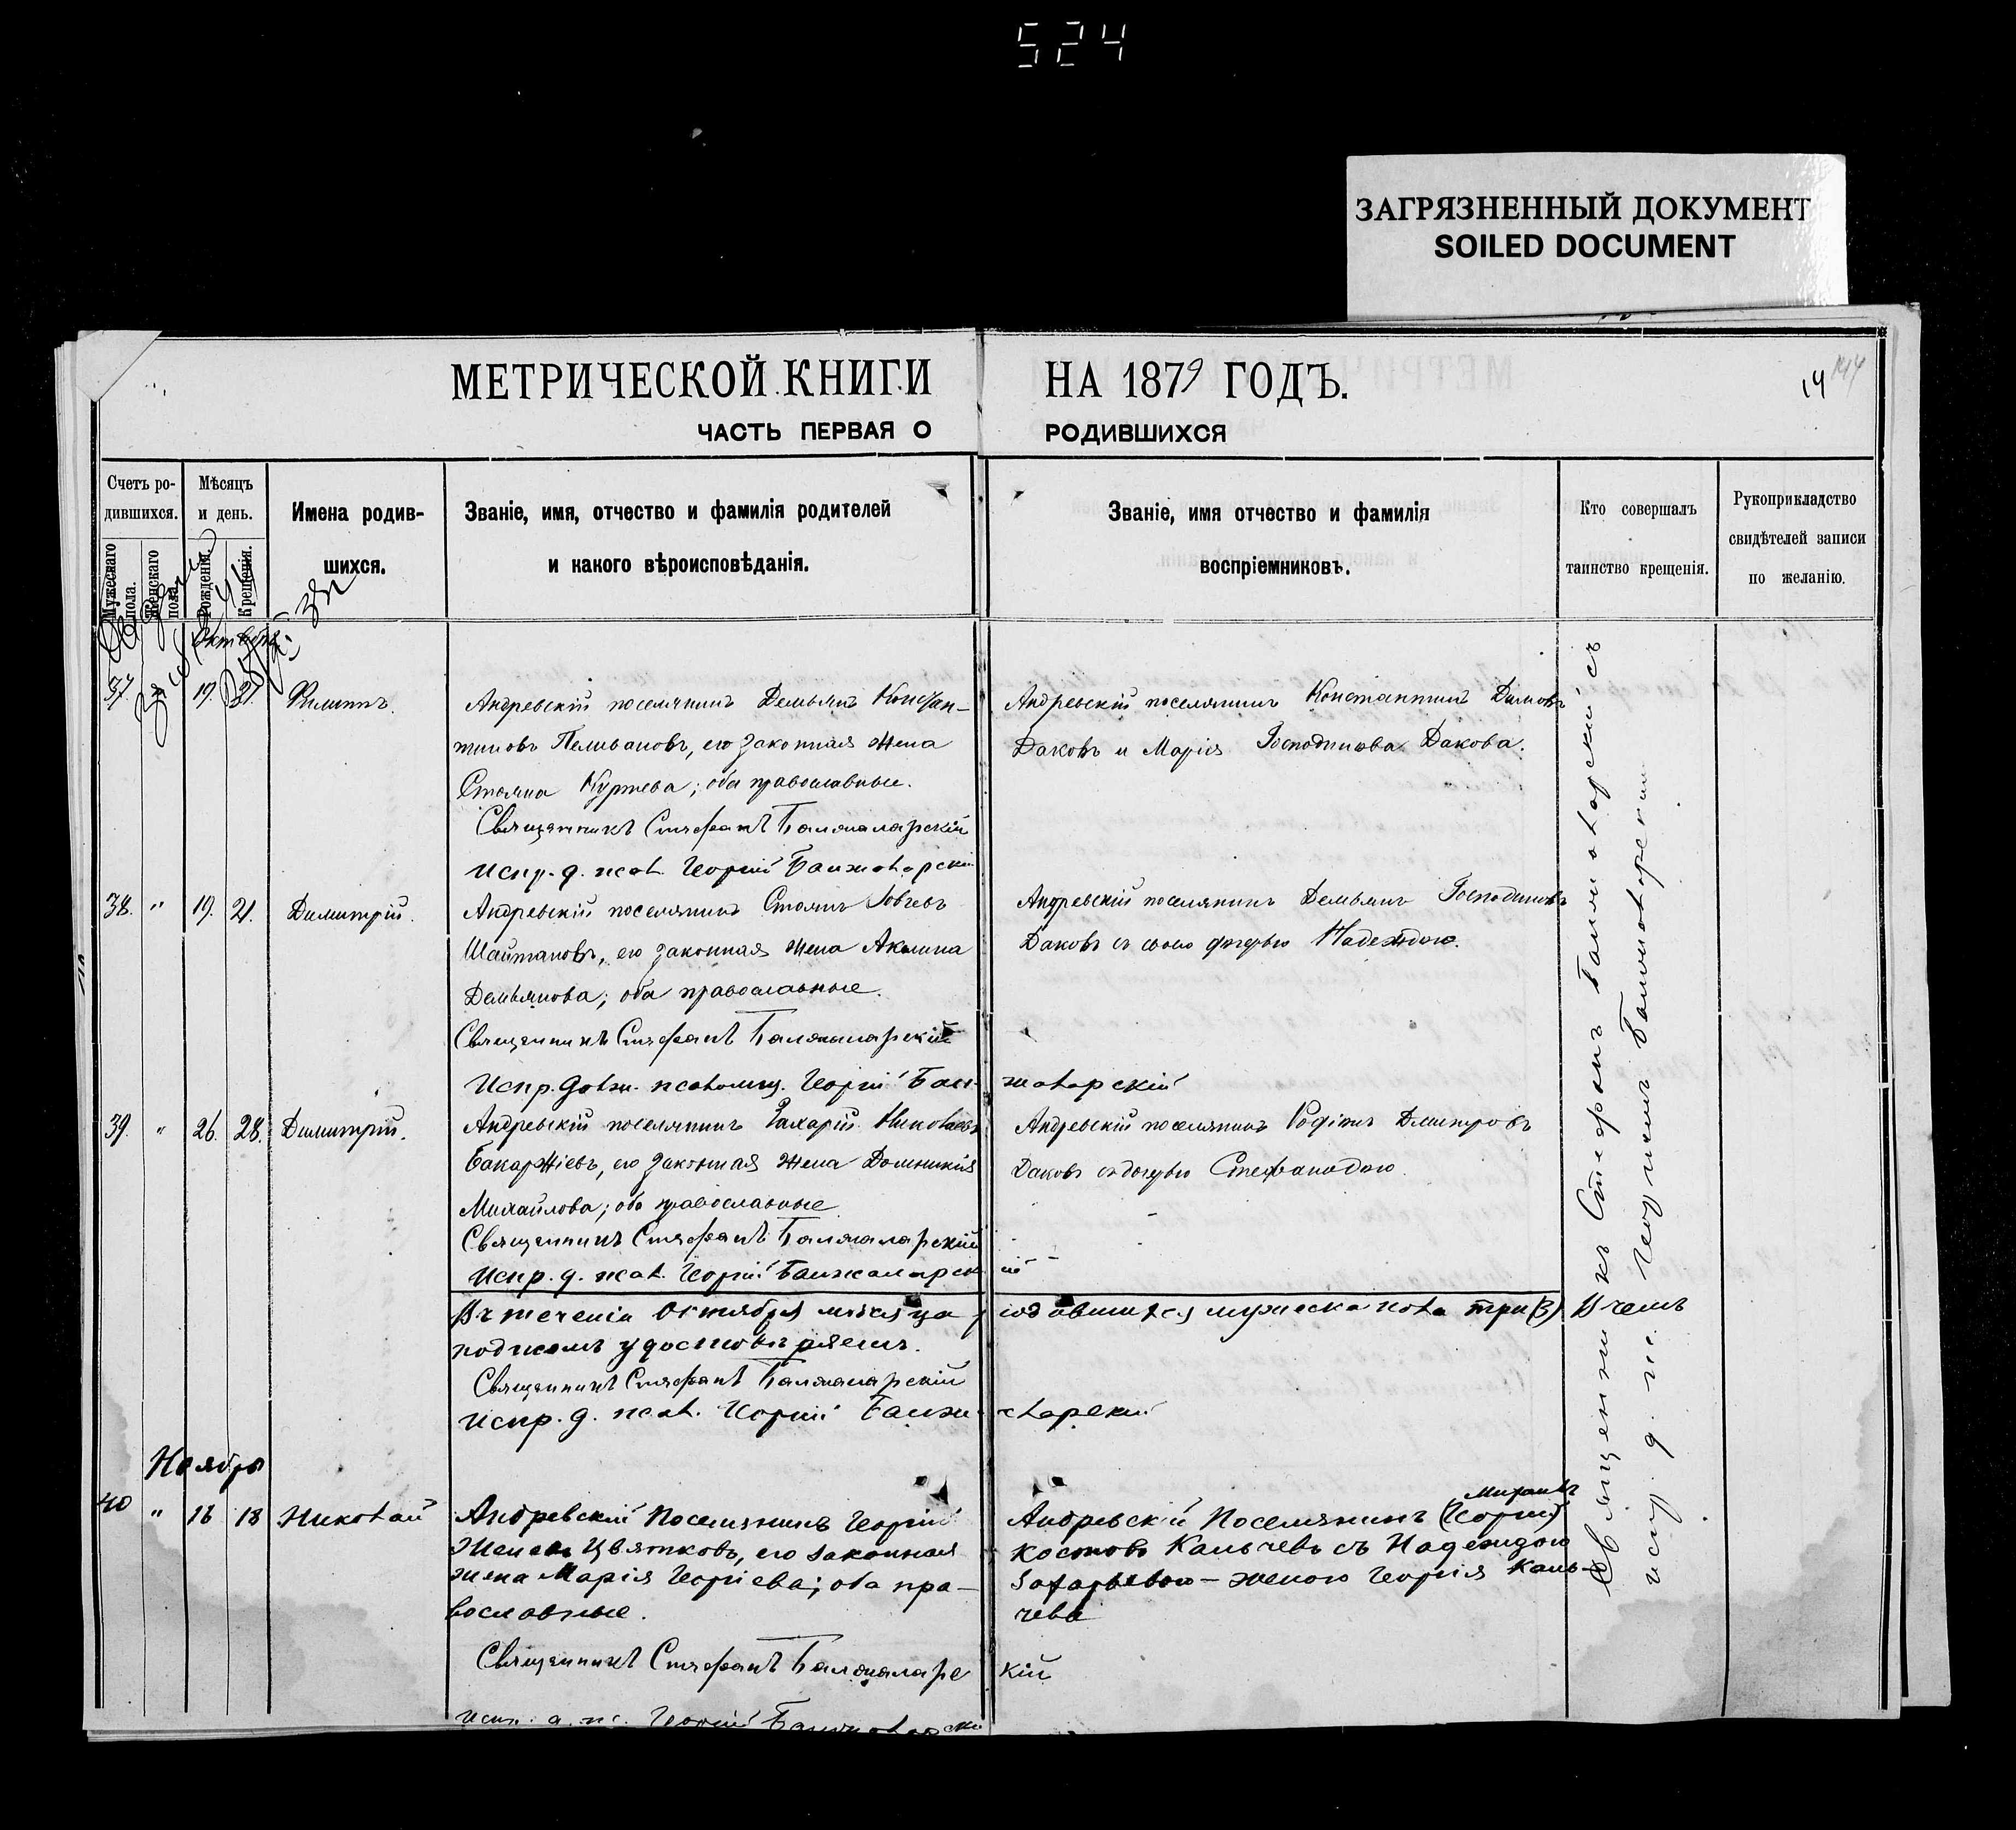 524
ЗАГРЯЗНЕННЫЙ ДОКУМЕНТ
SOILED DOCUMENT
МЕТРИЧЕСКОЙ КНИГИ НА 1879 ГОДЪ.
14 144
ЧАСТЬ ПЕРВАЯ О РОДИВШИХСЯ
Счетъ ро-
дившихся.
Мужескаго пола.
Женскаго пола.
Мѣсяцъ
и день.
Рожденія.
Крещенія.
Имена родив-
шихся.
Званіе, имя, отчество и фамилія родителей
и какого вѣроисповѣданія.
Званіе, имя отчество и фамилія
воспріемниковъ.
Кто совершалъ
таинство крещенія.
Рукоприкладство
свидѣтелей записи
по желанію.
Октябрь
37. " 19. 21. Филиппъ.
Андреевскій поселянинъ Демьянъ Констан-
тиновъ Пеливановъ, его законная жена
Стояна Куртева; оба православные.
Священникъ Стефанъ Баложаларскій
Испр. д. псал. Георгій Балжаларскій
Андреевскій поселянинъ Константинъ Димовъ
Даковъ и Марія Господинова Дакова.
38. " 19. 21. Димитрій.
Андреевскій поселянинъ Стоянъ Іовчевъ
Шайтановъ, его законная жена Акилина
Демьянова; оба православные.
Священникъ Стефанъ Баложаларскій
Испр. должн. псаломщ. Георгій Бал-
жаларскій
Андреевскій поселянинъ Демьянъ Господиновъ
Даковъ съ своею дочерью Надеждою.
39. " 26. 28. Димитрій.
Андреевскій поселянинъ Захарій Николаевъ
Бакаржіевъ, его законная жена Домникія
Михайлова; оба православные
Священникъ Стефанъ Баложаларскій
Испр. д. псал. Георгій Балжаларскій
Андреевскій поселянинъ Родіонъ Дмитровъ
Даковъ съ дочерью Стефанидою.
Въ теченіи Октября мѣсяца родившихся мужеска пола три (3) В чемъ
подписомъ удостовѣряемъ.
Священникъ Стефанъ Баложаларскій
Испр. д. псал. Георгій Балжаларскій
Ноябрь
40 " 16 18 Николай
Андреевскій Поселянинъ Георгій
Желевъ Цвятковъ, его законная
жена Марія Георгіева; оба пра-
вославные.
Священникъ Стефанъ Баложаларскій
Испр. д. пс. Георгій Балжаларскі
Андреевскій Поселянинъ (Георгій)
Костовъ Кальчевъ съ Надеждою
Захарьевою - женою Георгія Каль-
чева
Священникъ Стефанъ Баложаларскій съ
испр. д. пс. Георгіемъ Балжаларскимъ